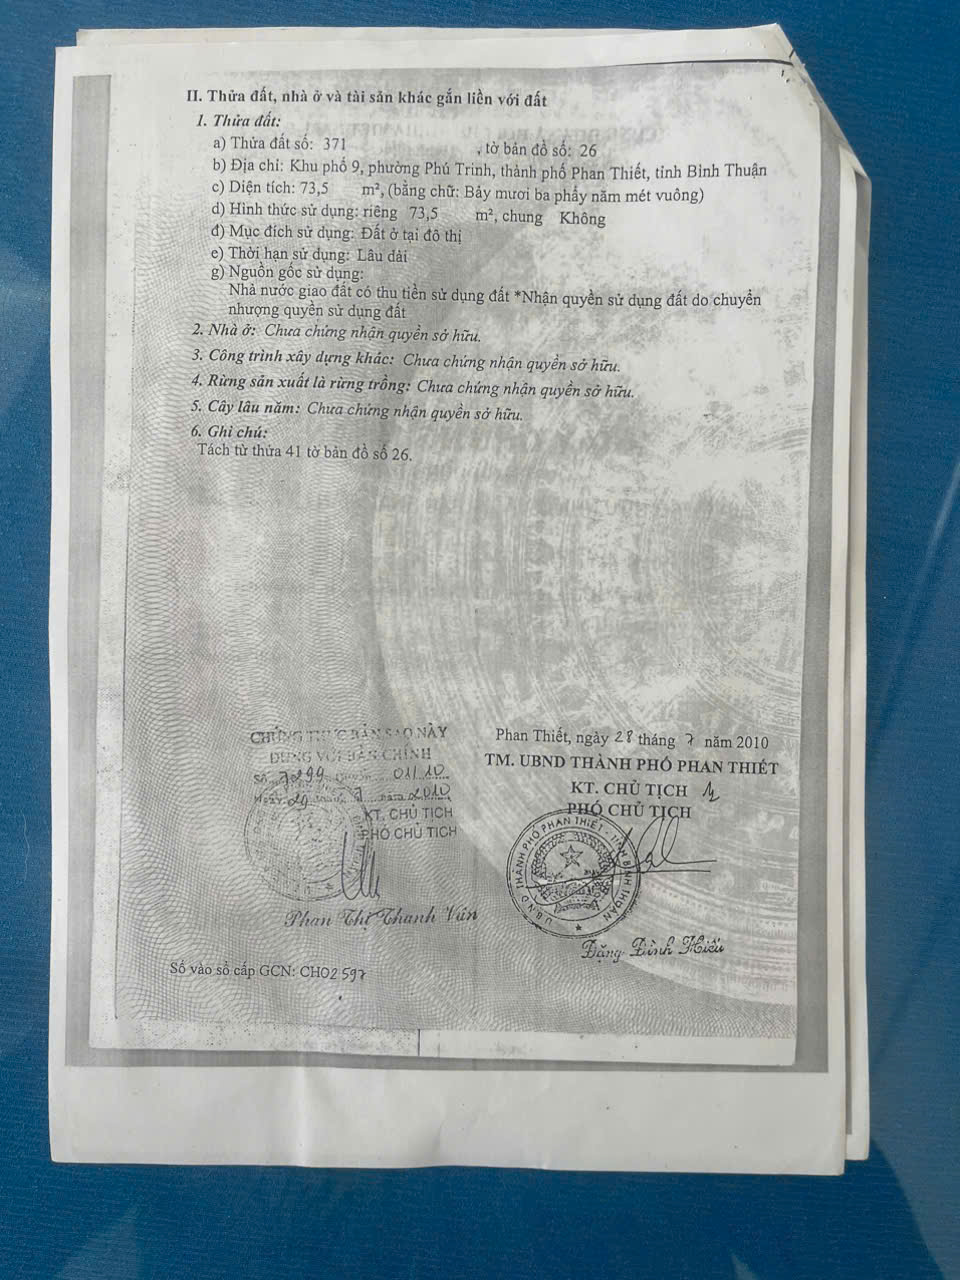 II. Thửa đất, nhà ở và tài sản khác gắn liền với đất
1. Thửa đất:
a) Thửa đất số: 371 , tờ bản đồ số: 26
b) Địa chỉ: Khu phố 9, phường Phú Trinh, thành phố Phan Thiết, tỉnh Bình Thuận
c) Diện tích: 73,5 m², (bằng chữ: Bảy mươi ba phẩy năm mét vuông)
d) Hình thức sử dụng: riêng 73,5 m², chung Không
đ) Mục đích sử dụng: Đất ở tại đô thị
e) Thời hạn sử dụng: Lâu dài
g) Nguồn gốc sử dụng:
Nhà nước giao đất có thu tiền sử dụng đất *Nhận quyền sử dụng đất do chuyển
nhượng quyền sử dụng đất
2. Nhà ở: Chưa chứng nhận quyền sở hữu.
3. Công trình xây dựng khác: Chưa chứng nhận quyền sở hữu.
4. Rừng sản xuất là rừng trồng: Chưa chứng nhận quyền sở hữu.
5. Cây lâu năm: Chưa chứng nhận quyền sở hữu.
6. Ghi chú:
Tách từ thửa 41 tờ bản đồ số 26.
CHỨNG THỰC BẢN SAO NÀY
ĐÚNG VỚI BẢN CHÍNH
Số 7299 Quyển 01/10
Ngày 29 tháng 7 năm 2010
KT. CHỦ TỊCH
PHÓ CHỦ TỊCH
Phan Thị Thanh Vân
Phan Thiết, ngày 28 tháng 7 năm 2010
TM. UBND THÀNH PHỐ PHAN THIẾT
KT. CHỦ TỊCH
PHÓ CHỦ TỊCH
U.B.N.D THÀNH PHỐ PHAN THIẾT - TỈNH BÌNH THUẬN
Đặng Đình Hiếu
Số vào sổ cấp GCN: CH02597